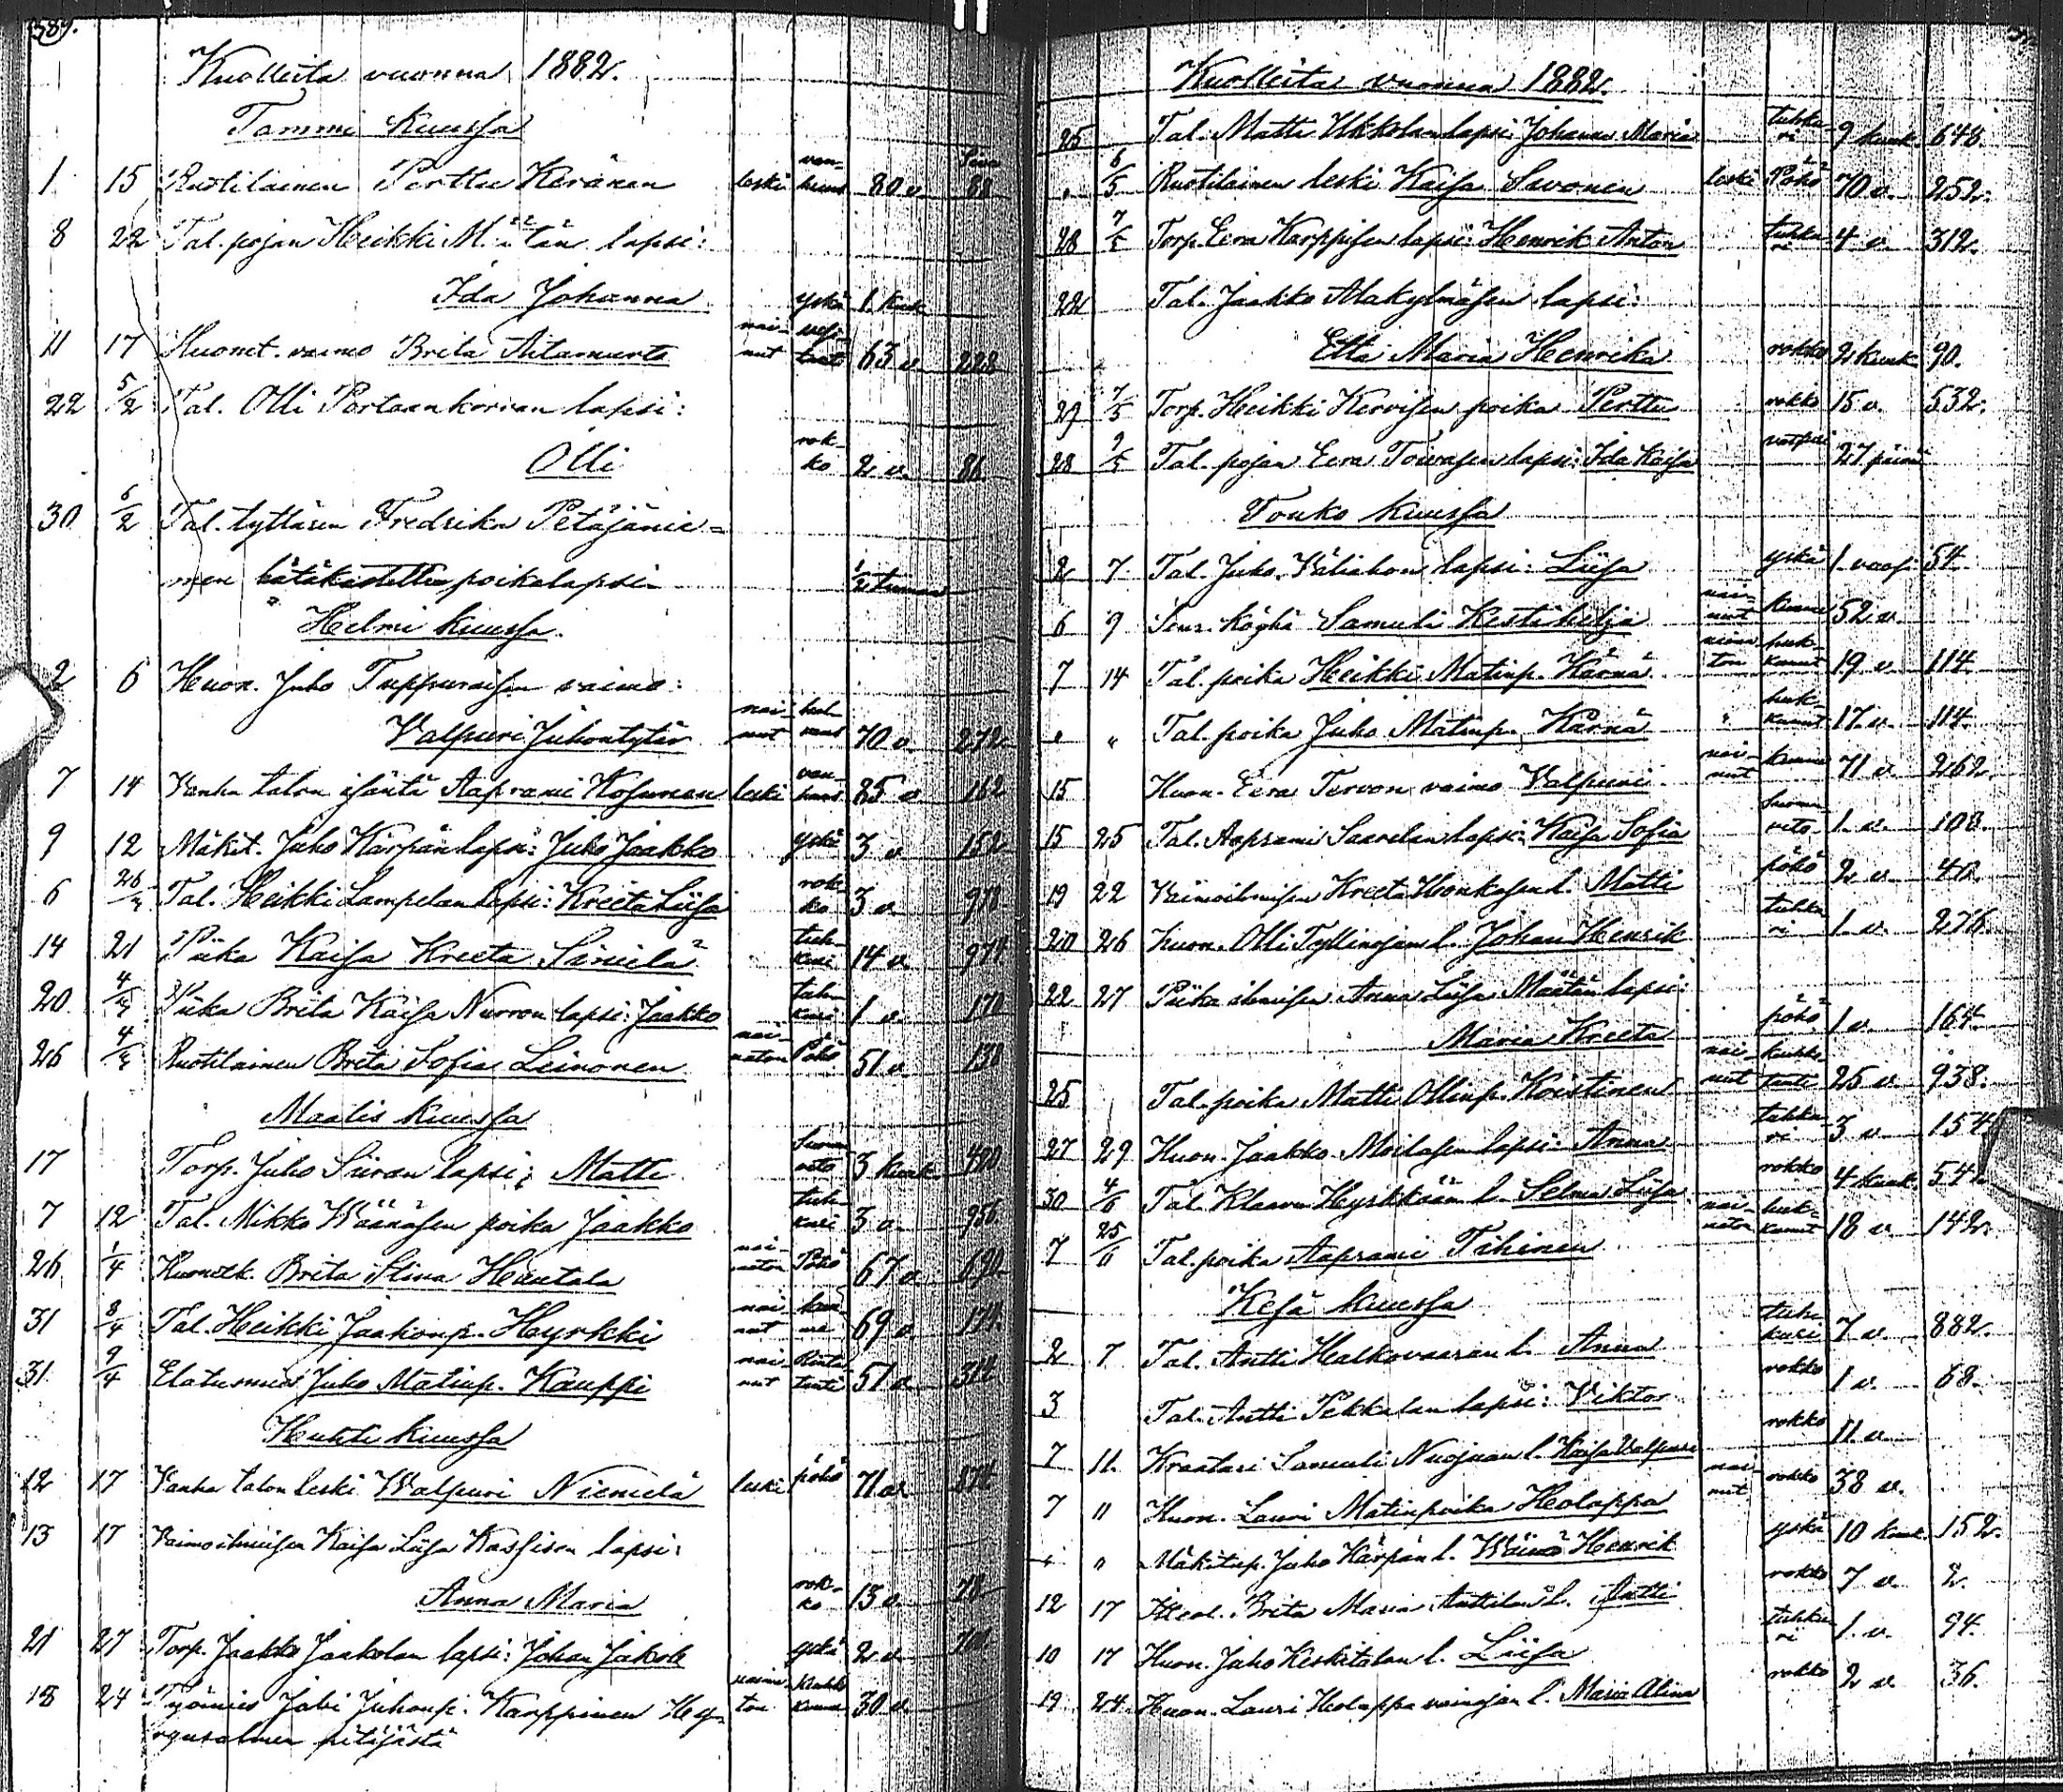 589.
Kuolleita vuonna 1882.
Tammi kuussa
Sivu
1 15 Ruotilainen Perttu Keränen leski van-huus 80 v. 88
8 22 Tal. pojan Heikki Määtän lapsi:
Ida Johanna yskä 1 kuuk
11 17 Huonet. vaimo Brita Aitamurto nai-nut 63 v. 228
22 5/2 Tal. Olli Portaankorvan lapsi:
Olli rok-ko 2 v. 86
30 5/2 Tal. tyttären Fredrika Petäjänie-
men hätäkastettu poikalapsi 1/2 tunnin
Helmi kuussa.
2 6 Huon. Juho Tuppuraisen vaimo:
Valpuri Juhontytär nai-nut 70 v. 272
7 14 Vanha talon isäntä Aaprami Kosunen leski van-huus 85 v. 162
9 12 Mäkit. Juho Kärpän lapsi: Juho Jaakko yskä 3 v. 152
6 Tal. Heikki Lampelan lapsi: Kreeta Liisa rok-ko 3 v. 978
14 21 Piika Kaisa Kreeta Sirvielä 14 v. 974
20 4/4 Piika Brita Kaisa Nurron lapsi: Jaakko 1 v. 170
26 4/4 Ruotilainen Brita Sofia Leinonen nai-maton Pöhö 51 v. 138
Maalis kuussa
17 Torp. Juho Siiran lapsi; Matti Suon-veto 3 kuuk. 480
7 12 Tal. Mikko Wäänäsen poika Jaakko tuh-kuri 3 v. 956
26 1/4 Brita Stina Hautala nai-maton Pöhö 67 v. 690
31 8/4 Tal. Heikki Jaakonp. Hyrkki nai-nut 69 v.
31 9/4 Elatusmies Juho Matinp. Kauppi nai-nut Rinta tauti 51 v. 314
Huhti kuussa
12 17 Vanha talon leski Walpuri Niemelä leski pöhö 71 v. 874
13 17 Vaimoihmisen Kaisa Liisa Kassisen lapsi:
Anna Maria rok-ko 13 v. 78
21 27 Torp. Jaakko Jaakolan lapsi: Johan Jakob yskä 2 v.
18 24 Työmies Juhonp. Karppinen Hy- naima-ton 30 v.
rynsalmen pitäjästä
Kuolleita vuonna 1882
25 Tal. Matti Ukkolan lapsi: Johanna Maria tuhka-ri 9 kuuk. 648.
" 6/5 Ruotilainen leski Kaisa Savonen leski Pöhö 70 v. 252.
28 7/5 Torp. Eera Karppisen lapsi: Henrik Anton tuhka-ri 4 v. 312.
22 Tal. Jaakko Alakylmäsen lapsi:
Etla Maria Henrika rokko 2 kuuk 90.
29 7/5 Torp. Heikki Kervisen poika Perttu rokko 15 v. 532.
28 9/5 Tal. pojan Eera Toivasen lapsi: Ida Kaisa 27 päivä
Touko kuussa
2 7 Tal. Juho Väliahon lapsi: Liisa yskä 1 vuosi 54
6 9 Samuli Kestikelja nai-nut kuume 52 v.
7 14 Tal. poika Heikki Matinp. Kärnä naima-ton huk-kunut 19 v. 114
" " Tal. poika Juho Matinp. Kärnä " huk-kunut 17 v. 114.
15 Huon. Eera Tervon vaimo Valpuri nai-nut kuume 71 v. 262.
15 25 Tal. Aaprami Saarelan lapsi: Kaisa Sofia Suonen veto 1 v. 108.
19 22 Vaimoihmisen Kreeta Honkasen l. Matti pöhö 2 v. 42.
20 26 Huon. Olli Tyllinojan l. Johan Henrik tuhka-ri 1 v. 276
22 27 Piika ihmisen Anna Liisa Määtän lapsi:
Maria Kreeta pöhö 1 v. 164.
25 Tal. poika Matti Ollinp. Koistinen nai-nut 25 v. 938.
27 29 Huon. Jaakko Moilasen lapsi: Anna tuhka-ri 3 v. 154
30 4/6 Tal. Klaavu Hyrkkään l. Selma Liisa rokko 4 kuuk. 54.
7 25/6 Tal. poika Aaprami Tihinen nai-maton huk-kunut 18 v. 142.
Kesä kuussa
2 7 Tal. Antti Halkovaaran l. Anna tuh-kuri 7 v. 882.
3 Tal. Antti Pekkalan lapsi: Viktor rokko 1 v. 68.
7 11. Kraatari Samuli Nuojuan l. Kaisa Valpuri rokko 11 v.
7 " Huon. Lauri Matinpoika Heolappa nai-nut rokko 38 v.
" " Mäkitup. Juho Kärpän l. Wäinö Henrik yskä 10 kuuk. 152.
12 17 Brita Maria Anttilan l. Antti rokko 7 v. 2.
10 17 Huon. Juho Keskitalon l. Liisa tuhka-ri 1 v. 94
19 24. Huon. Lauri Heolappa vainajan l. Maria Alina rokko 2 v. 36.